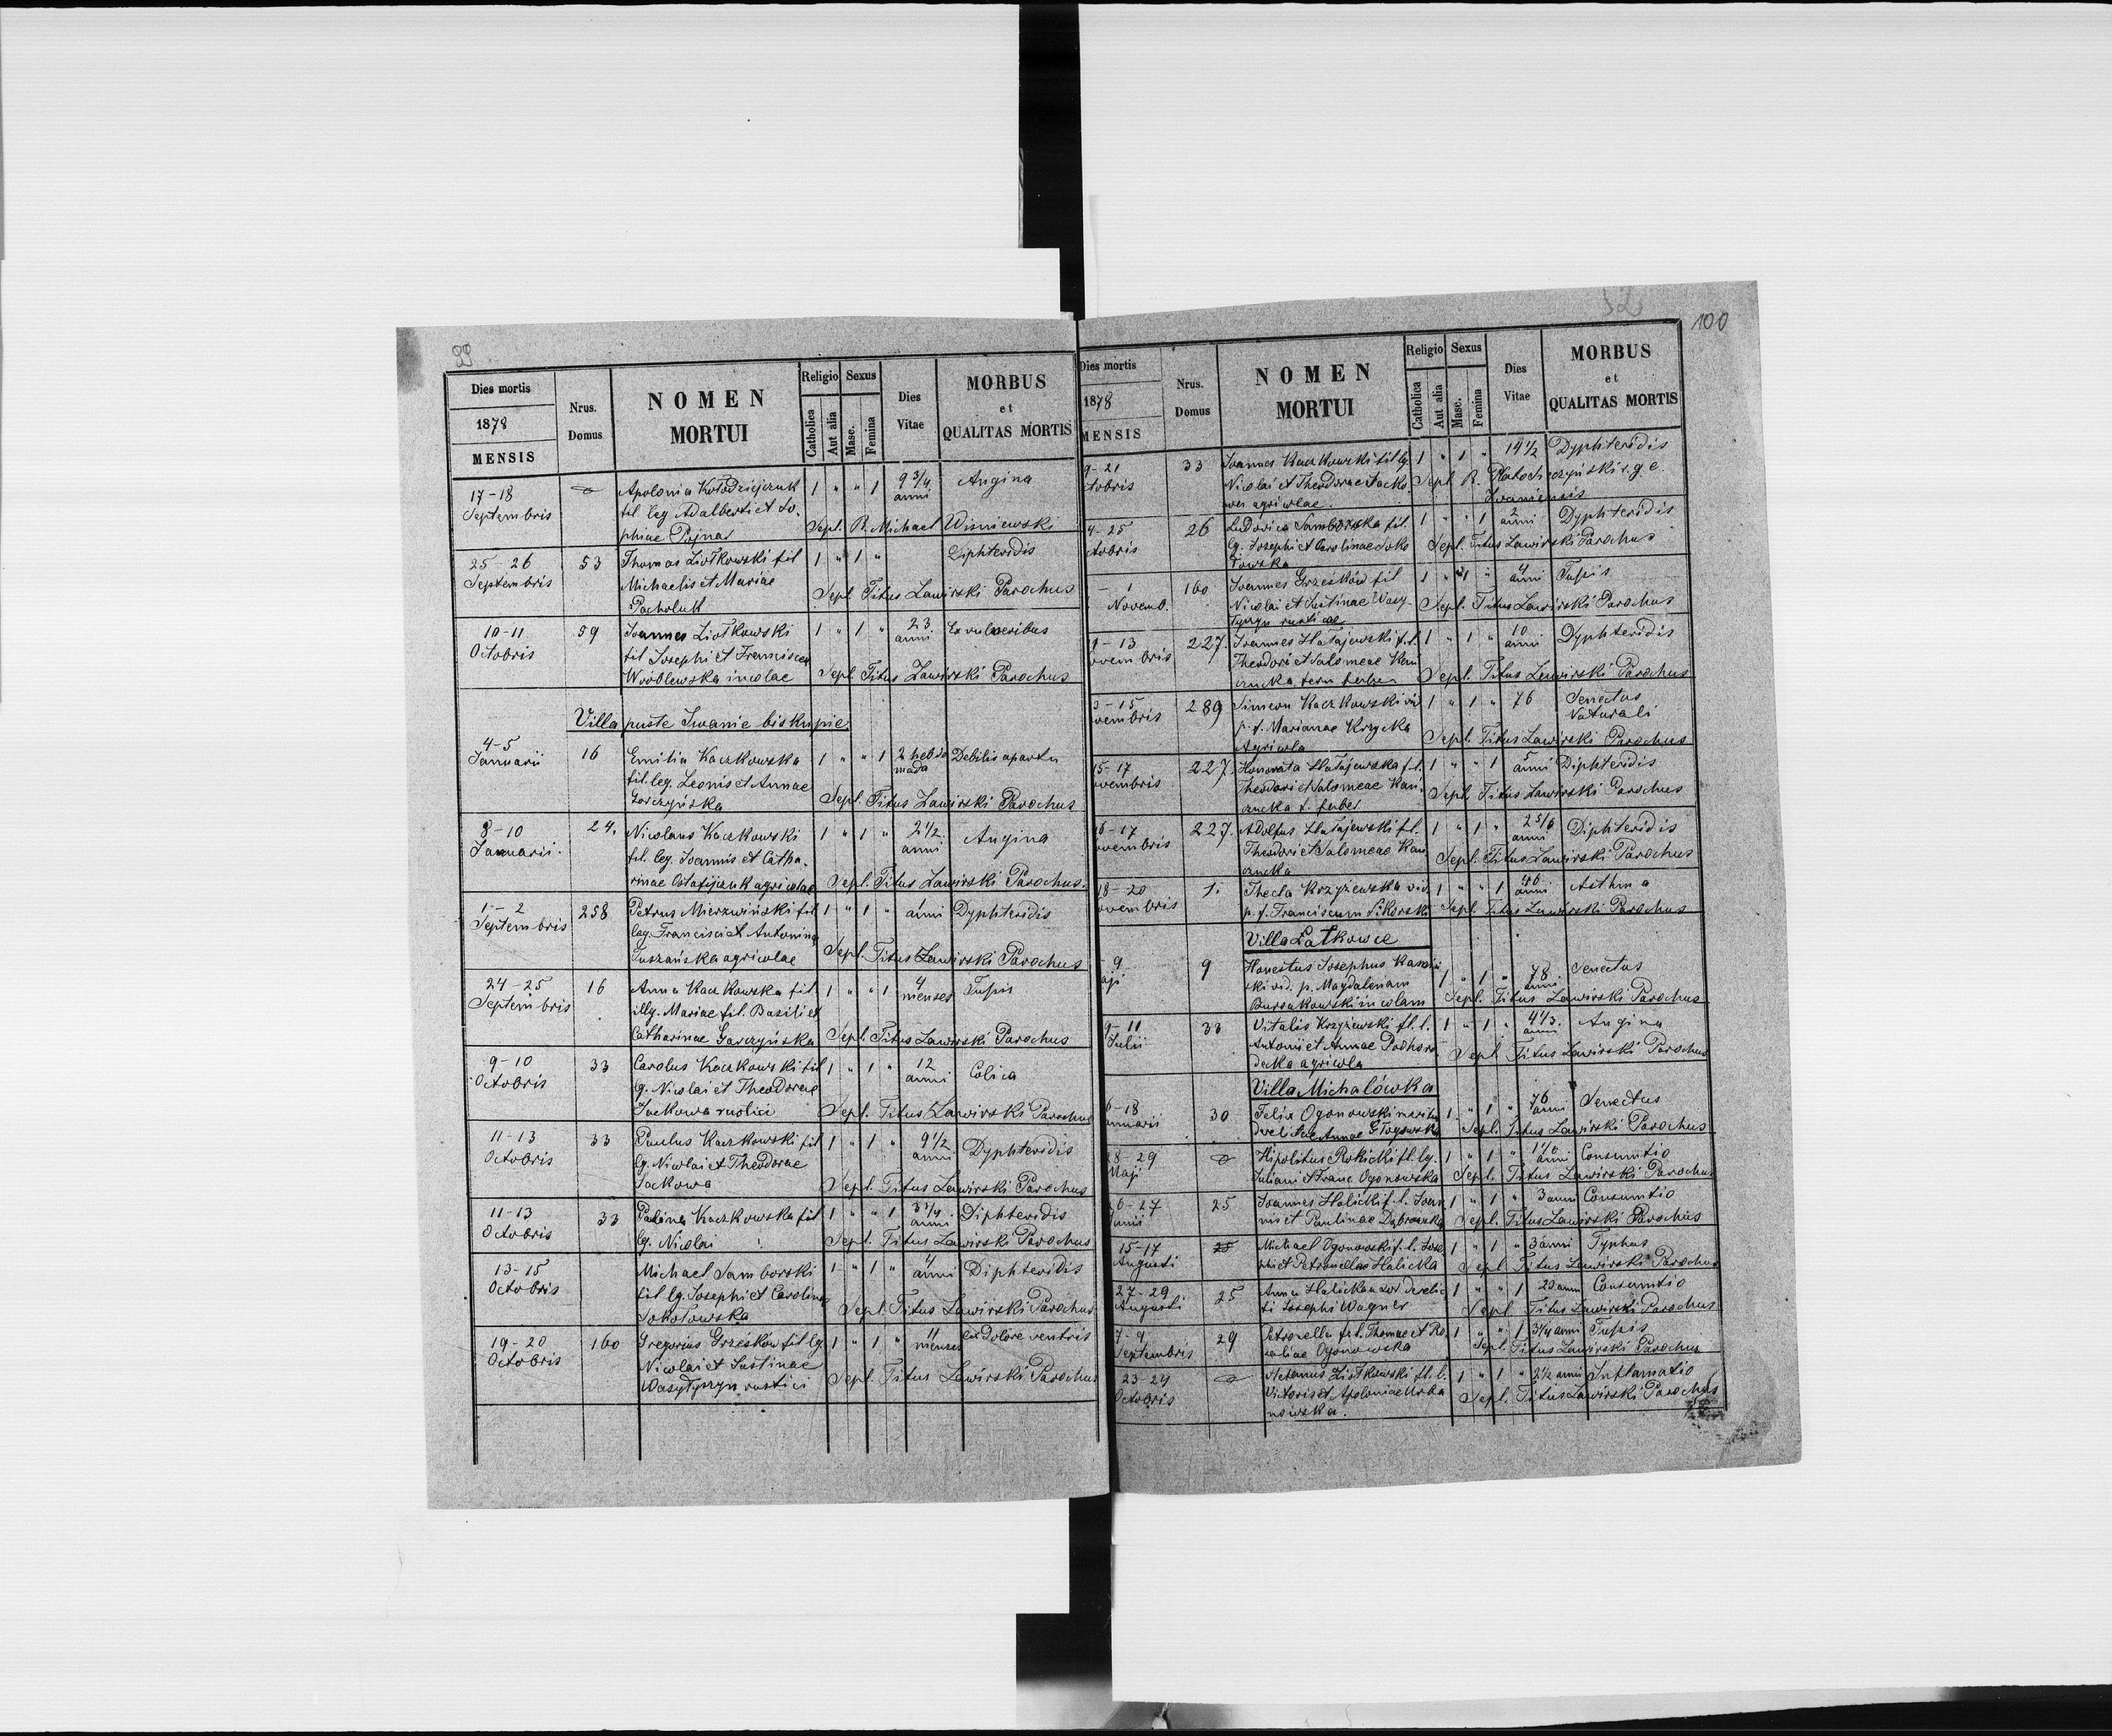 99
Dies mortis
1878
MENSIS
Nrus.
Domus
NOMEN
MORTUI
Religio
Catholica
Aut alia
Sexus
Masc.
Femina
Dies
Vitae
MORBUS
et
QUALITAS MORTIS
17-18 Apolonia Kołodziejczuk 1 " " 1 9 3/4 Angina
Septembris fil leg Adalberti et So- anni
phiae Pojnar Sepl. R. Michael Wiśniewski
25-26 53 Thomas Ziółkowski fil 1 " 1 " Diphteridis
Septembris Michaelis et Mariae
Pacholuk Sepl Titus Zawirski Parochus
10-11 59 Joannes Ziółkowski 1 " 1 " 23 Ex vulneribus
Octobris fil Josephi et Francisca anni
Wróblewska incolae Sepl Titus Zawirski Parochus
Villa puste Iwanie biskupie
4-5 16 Emilia Kaczkowska 1 " " 1 2 hebdo Debilis a partu
Januarii fil. leg. Leonis et Annae mada
Gorczyńska Sepl. Titus Zawirski Parochus
8-10 24. Nicolaus Kaczkowski 1 " 1 " 2 1/2 Angina
Januarii. fil. leg Joannis et Catha- anni
rinae Ostafijczuk agricolae Sepl. Titus Zawirski Parochus.
1-2 258 Petrus Mierzwiński fil 1 " 1 " anni Dyphteridis
Septembris leg. Francisci et Antonina
Juszańska agricolae Sepl. Titus Zawirski Parochus
24-25 16 Anna Kaczkowska fil. 1 " " 1 4 Tussis
Septembris illg. Mariae fil. Basilii et menses
Catharinae Garczyńska Sepl. Titus Zawirski Parochus
9-10 33 Carolus Kaczkowski fil 1 " 1 " 12 Colica
Octobris lg. Nicolai et Theodorae anni
Jackowa rustici Sepl. Titus Zawirski Parochus
11-13 33 Paulus Kaczkowski fil 1 " 1 " 9 1/2 Dyphteridis
Octobris lg. Nicolai et Theodorae anni
Jackowa Sepl. Titus Zawirski Parochus
11-13 33 Paulina Kaczkowska fil 1 " " 1 3 1/4 Diphteridis
Octobris lg. Nicolai anni
Sepl. Titus Zawirski Parochus
13-15 Michael Samborski 1 " 1 " 4 Diphteridis
Octobris fil lg. Josephi et Carolina anni
Sokołowska Sepl. Titus Zawirski Parochus
19-20 160 Gregorius Grześków fil lg. 1 " 1 " 11 ex Dolore ventris
Octobris Nicolai et Justinae menses
Wasyłyszyn rustici Sepl. Titus Zawirski Parochus
100
Dies mortis
1878
MENSIS
Nrus.
Domus
NOMEN
MORTUI
Religio
Catholica
Aut alia
Sexus
Masc.
Femina
Dies
Vitae
MORBUS
et
QUALITAS MORTIS
9-21 33 Joannes Kaczkowski fil lg. 1 " 1 " 14 1/2 Dyphteridis
ctobris Nicolai et Theodorae Jacko- Sepl. R. r. g. c.
wa agricolae.
4-25 26 Ludovica Samborska fil. 1 " " 1 2 anni Dyphteridis
ctobris lg. Josephi et Carolinae Soko Sepl. Titus Zawirski Parochus
łowska
- 1 160 Joannes Grześków fil 1 " 1 " 4 anni Tussis
Novemb. Nicolai et Justinae Wasy- Sepl. Titus Zawirski Parochus
łyszyn rusticae
1-13 227. Joannes Hałajewski f.l. 1 " 1 " 10 anni Dyphteridis
ovembris Theodori et Salomeae Kan
czucka Sepl. Titus Zawirski Parochus
3-15 289 Simeon Kaczkowski vid 1 " 1 " 76 Senectus
vembris p. f. Marianae Krzycka Naturali
Agricola Sepl. Titus Zawirski Parochus
15-17 227. Honorata Hałajewska f.l. 1 " " 1 5 anni Diphteridis
ovembris Theodori et Salomeae Kan- Sepl Titus Zawirski Parochus
czucka f. faber
16-17 227. Adolfus Hałajewski f.l. 1 " 1 " 2 5/6 anni Diphteridis
ovembris Theodori et Salomeae Kan Sepl. Titus Zawirski Parochus
czucka
18-20 1. Thecla Krzyżewska vid 1 " " 1 46 anni Asthma
ovembris p. f. Franciscum Sikorski Sepl. Titus Zawirski Parochus
Villa Latkowce
- 9 9 Honestus Josephus Kamiń 1 " 1 " 78 anni Senectus
aji ski vid. p. Magdalenam
Bursakowski incolam Sepl. Titus Zawirski Parochus
9-11 38 Vitalis Krzyżewski f.l. l. 1 " 1 " 4 1/3. anni Angina
Julii Antonii et Annae Podhoro
decka agricola Sepl. Titus Zawirski Parochus
Villa Michałówka
6-18 30 Felix Ogonowski maritus 1. " 1 " 76 anni Senectus
nuarii derelictae Annae Głogowska Sepl. Titus Zawirski Parochus
28 29 Hipolitus Rokicki f.l. lg. 1 " 1 " anni Consumtio
Maji Juliani et Franc. Ogonowska Sepl. Titus Zawirski Parochus
26-27 25 Joannes Halicki f. l. Joan 1 " 1 " 3 anni Consumtio
unii nis et Paulinae Dąbrowska Sepl. Titus Zawirski Parochus
15-17 25 Michael Ogonowski f. l. Jose 1 " 1 " 3 anni Typhus
Augusti phi et Petronellae Halicka Sepl Titus Zawirski Parochus
27-29 25 Anna Halicka uxor derelic 1 " " 1 23 anni Consumtio
Augusti ti Josephi Wagner Sepl Titus Zawirski Parochus
7-9 29 Petronella f.l. Thomae et Ro 1 " " 1 3/4 anni Tussis
Septembris saliae Ogonowska Sepl. Titus Zawirski Parochus
23-24 Ziółkowski f.l. l. 1 " 1 " 2 1/2 anni Inflamatio
Octobris Victoris et Apoloniae Urba Sepl. Titus Zawirski Parochus
nowska.